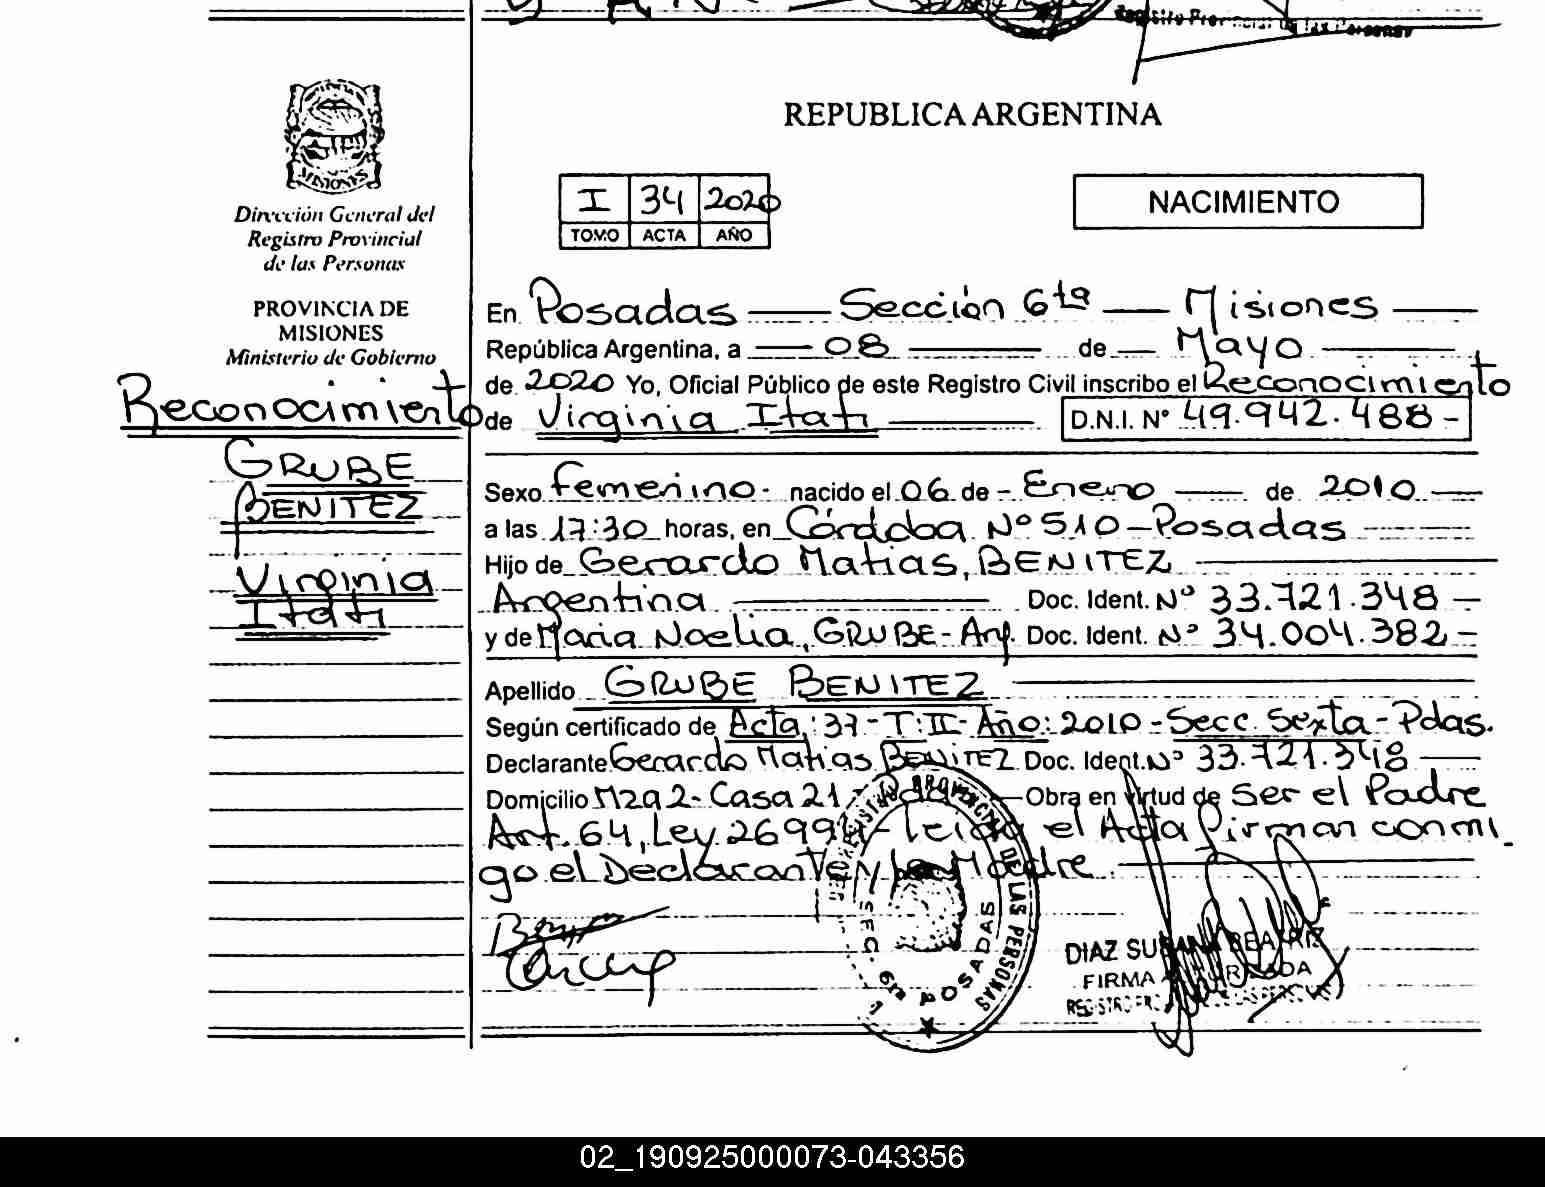 Registro Provincial de las Personas
REPUBLICA ARGENTINA
MISIONES
Dirección General del
Registro Provincial
de las Personas
PROVINCIA DE
MISIONES
Ministerio de Gobierno
Reconocimiento
GRUBE
BENITEZ
Virginia
Itatí
I 34 2020
TOMO ACTA AÑO
NACIMIENTO
En Posadas — Sección 6ta — Misiones —
República Argentina, a — 08 — de — Mayo —
de 2020 Yo, Oficial Público de este Registro Civil inscribo el Reconocimiento
de Virginia Itatí — D.N.I. Nº 49.942.488 -
Sexo Femenino - nacido el 06 de - Enero — de 2010 —
a las 17:30 horas, en Córdoba Nº 510 - Posadas
Hijo de Gerardo Matias, BENITEZ —
Argentina — Doc. Ident. Nº 33.721.348 —
y de Maria Noelia, GRUBE - Arg. Doc. Ident. Nº 34.004.382 -
Apellido GRUBE BENITEZ —
Según certificado de Acta: 37 - T: II - Año: 2010 - Secc. Sexta - Pdas.
Declarante Gerardo Matias BENITEZ Doc. Ident. Nº 33.721.348 —
Domicilio Mza 2 - Casa 21 - Pdas — Obra en virtud de Ser el Padre
Art. 64, Ley 26994 - Leida el Acta firman conmi
go el Declarante y la Madre. —
REGISTRO PROVINCIAL DE LAS PERSONAS
SEC. 6ta POSADAS
DIAZ SUSANA BEATRIZ
FIRMA AUTORIZADA
02_190925000073-043356